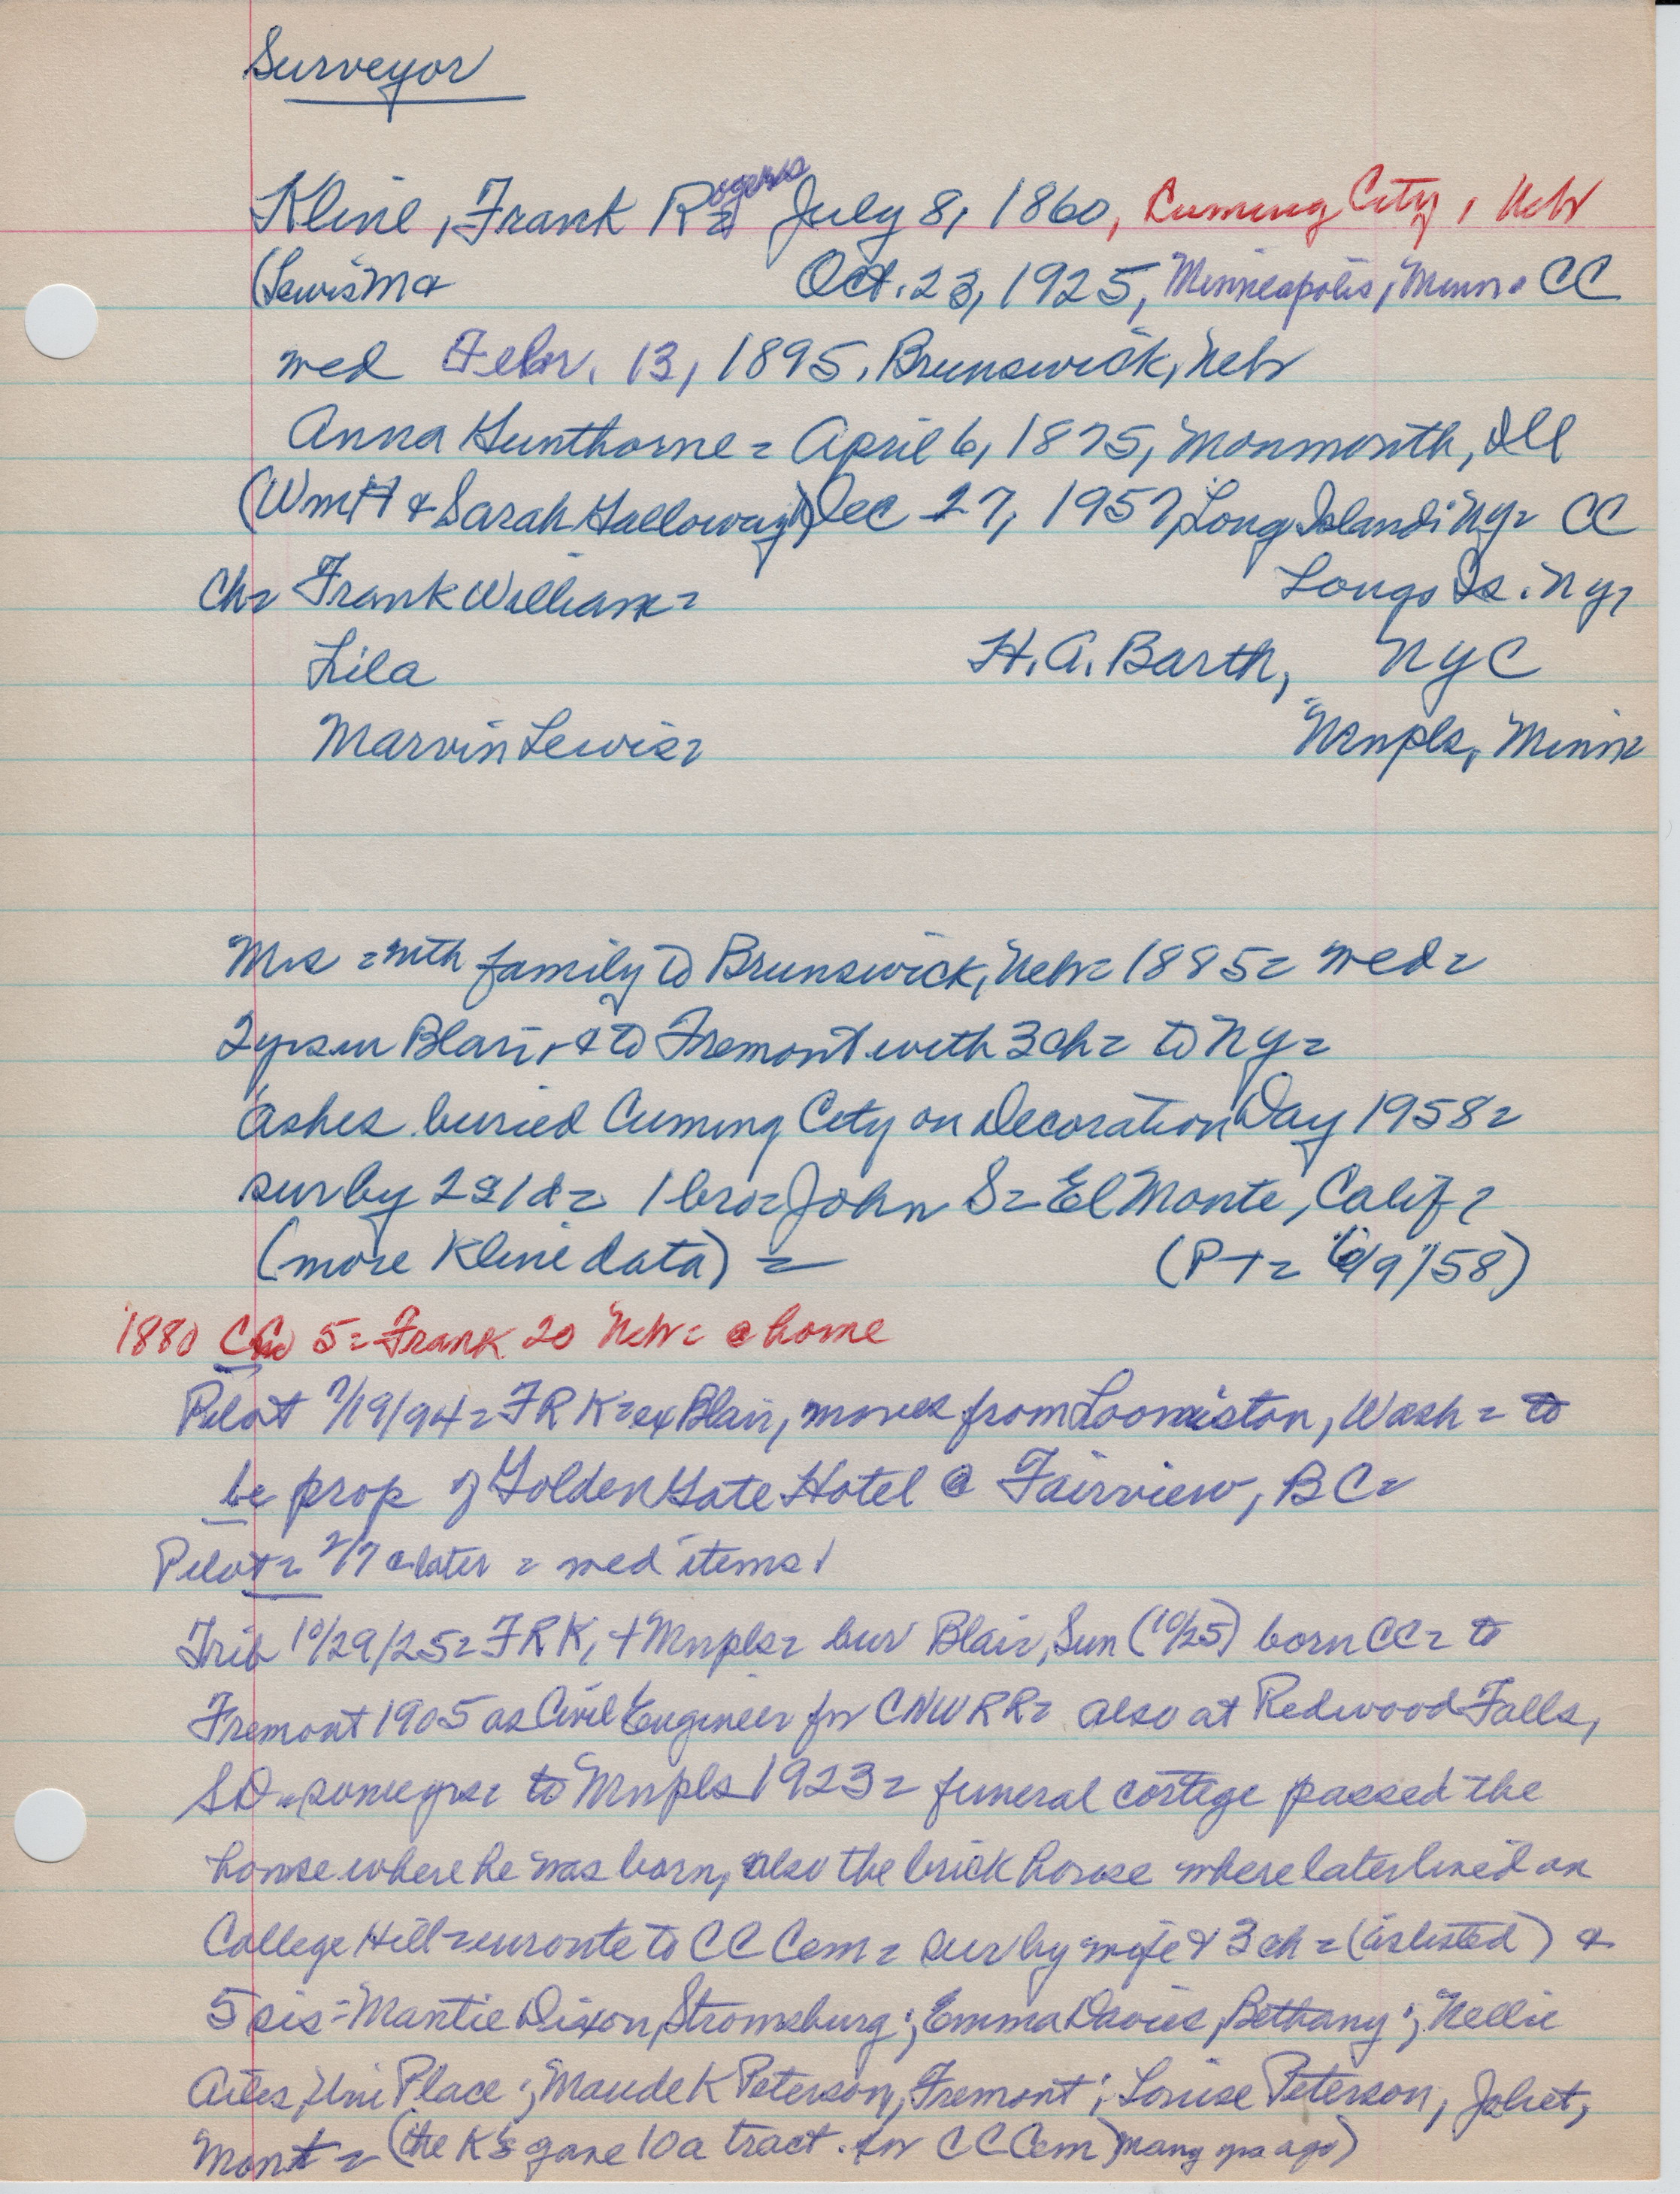 Surveyor
Kline, Frank Rogers July 8, 1860, Cuming City, Nebr
(Lewis M & Oct. 23, 1925, Minneapolis, Minn = CC
wed Febr. 13, 1895, Brunswick, Nebr
Anna Gunthorne = April 6, 1875, Monmouth, Ill
(Wm H & Sarah Galloway) Dec 27, 1957, Long Island, NY = CC
Ch = Frank William = Long Is. NY =
Lila H. A. Barth, NYC
Marvin Lewis = Mnpls, Minn =
Mrs = with family to Brunswick, Nebr = 1885 = wed =
2 yrs in Blair, & to Fremont with 3 ch = to NY =
Ashes buried Cuming City on Decoration Day 1958 =
sur by 2s 1d = 1 bro = John S = El Monte, Calif =
(more Kline data) = (P-T = 6/9/58)
1880 5 = Frank 20 Nebr = @ home
Pilot 7/19/94 = FRK = ex Blair, moves from Loomiston, Wash = to
be prop of Golden Gate Hotel @ Fairview, BC =
Pilot = 2/7 & later = wed items
Trib 10/29/25 = FRK, + Mnpls = bur Blair, Sun (10/25) born CC = to
Fremont 1905 as Civil Engineer for CNWRR = also at Redwood Falls,
SD = some yrs = to Mnpls 1923 = funeral cortege passed the
house where he was born, also the brick house where later lived on
College Hill = enroute to CC Cem = sur by wife & 3 ch = (as listed) &
5 sis = Mantie Dixon, Stromsburg; Emma Davies, Bethany; Nellie
Uni Place; Maude K Peterson, Fremont; Louise Peterson, Joliet,
Mont = (the K's gave 10a tract for CC Cem) many yrs ago)